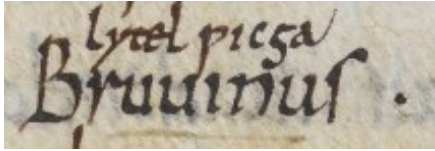 lytel picga
Bruuinus.